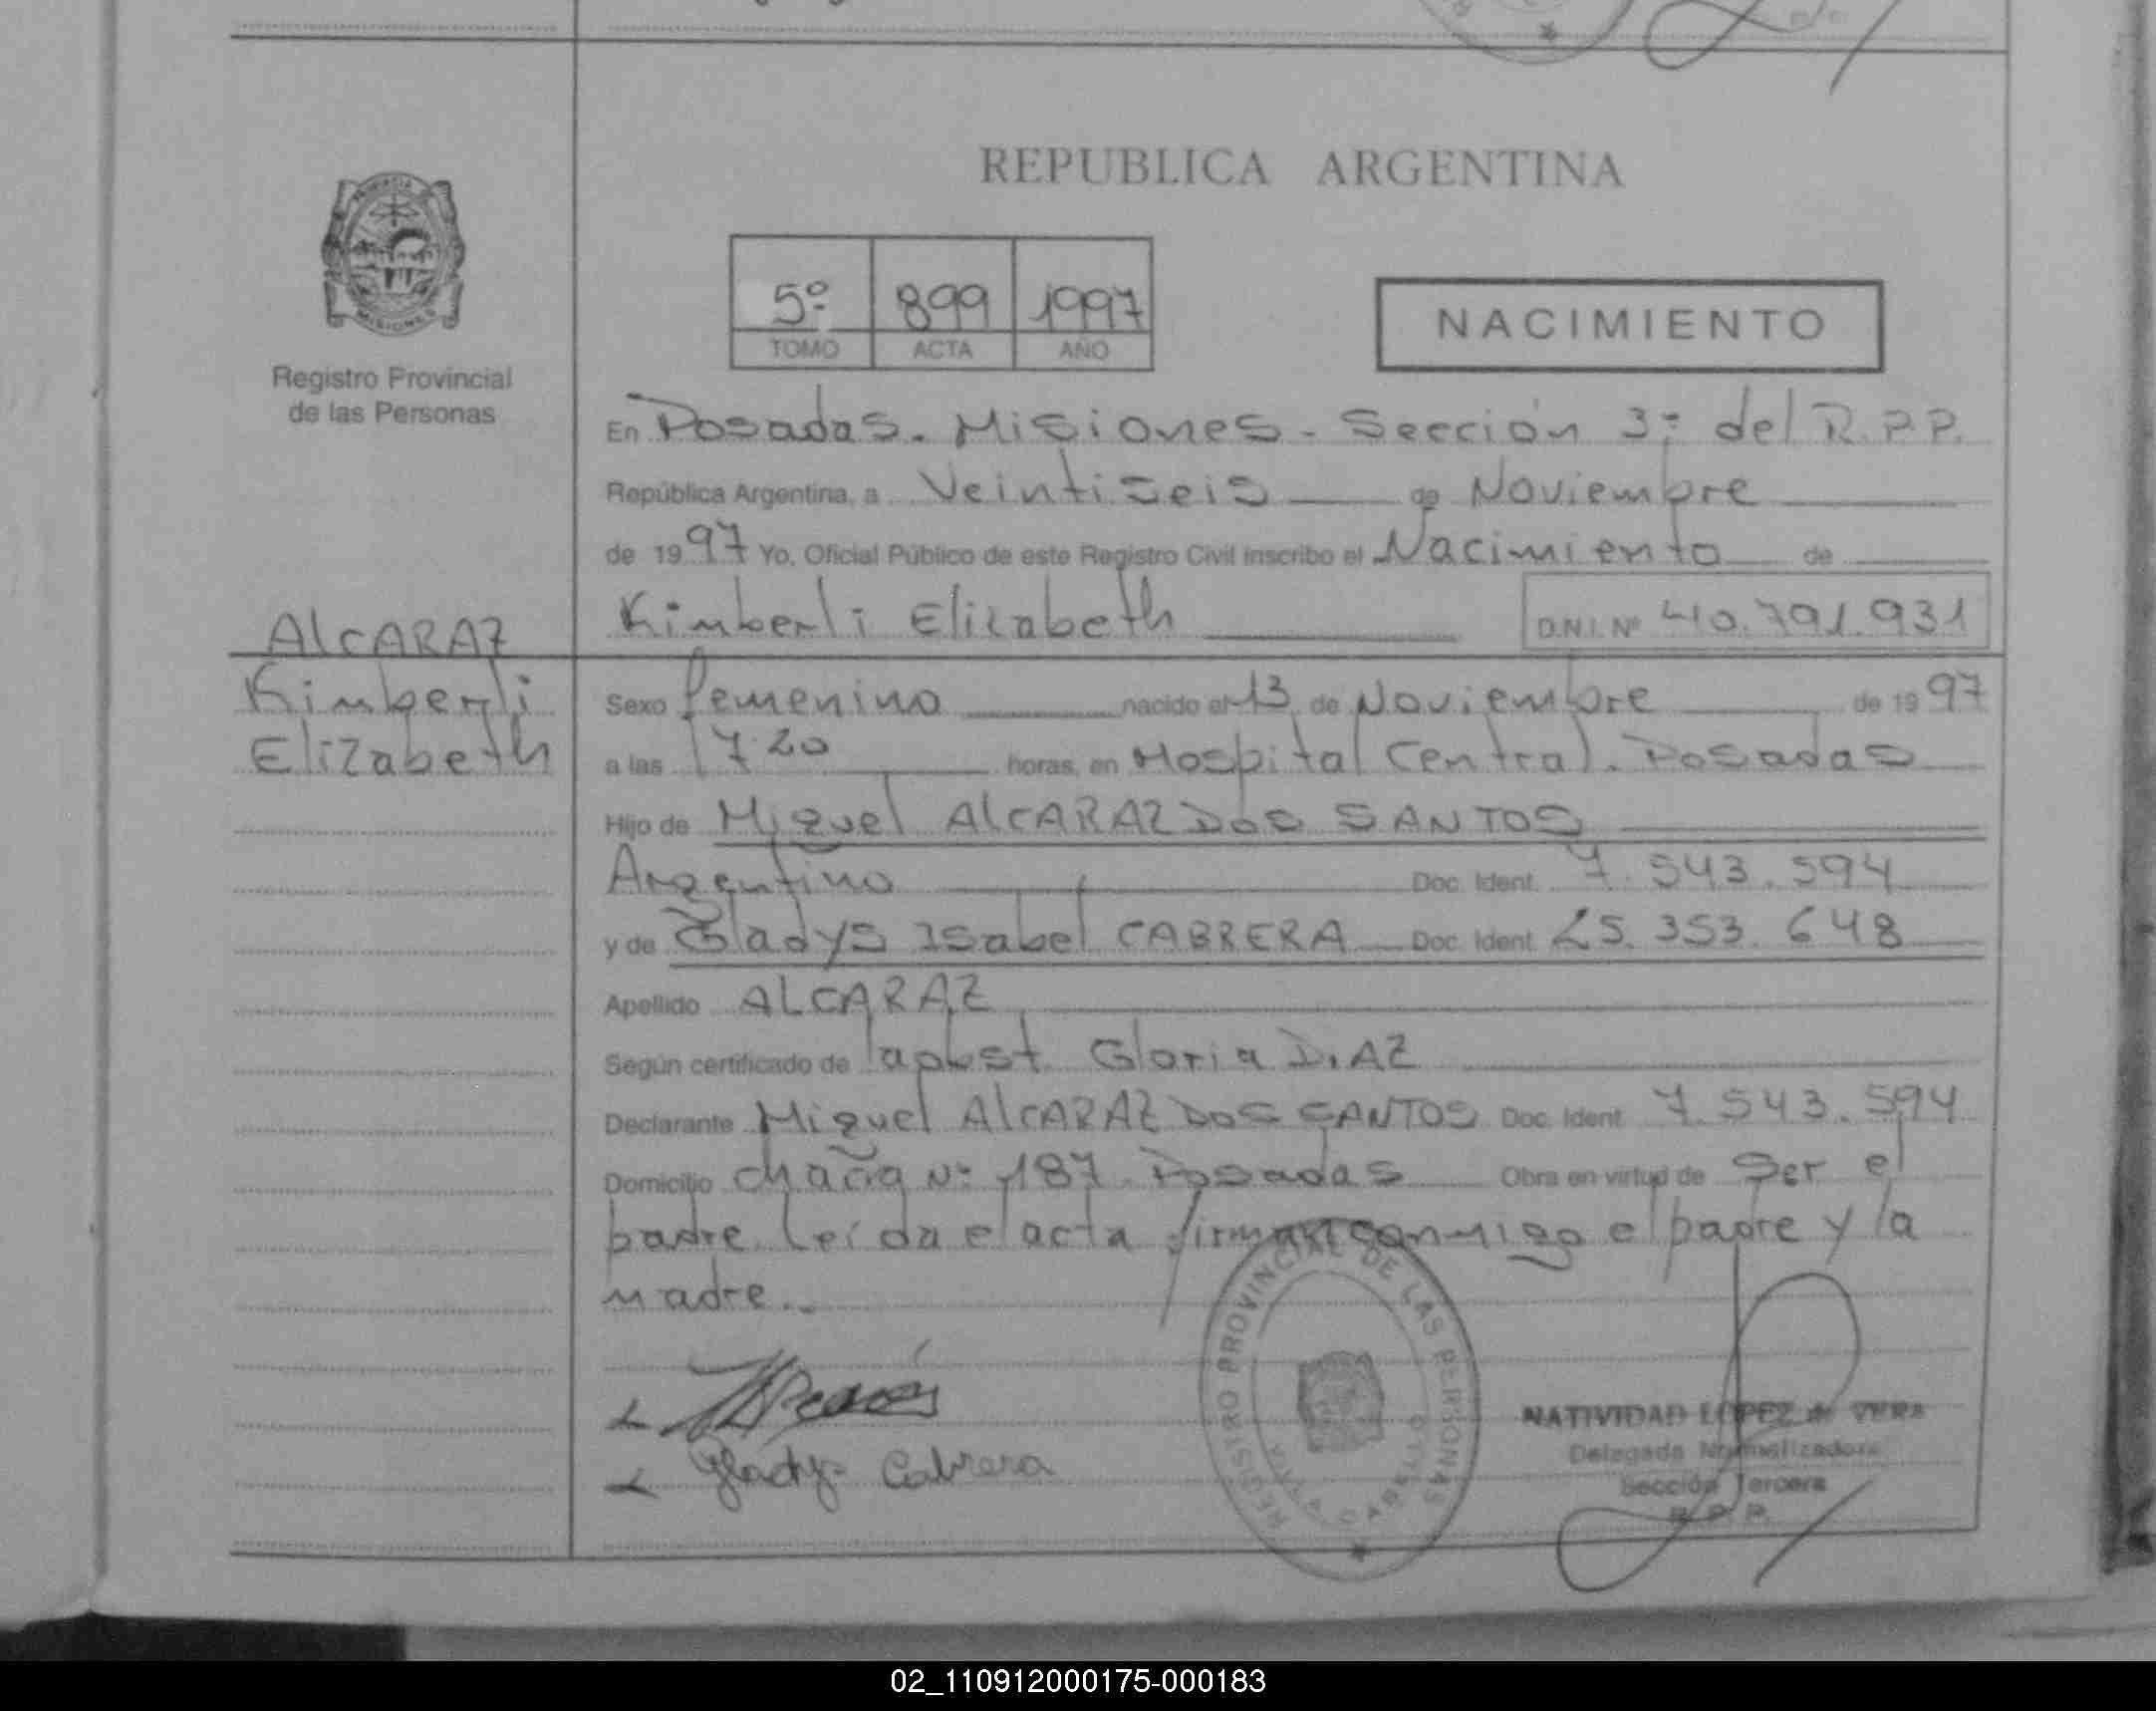 REPUBLICA ARGENTINA
PROVINCIA
MISIONES
Registro Provincial
de las Personas
5º 899 1997
TOMO ACTA AÑO
NACIMIENTO
En Posadas. Misiones - Sección 3ª del R.P.P.
República Argentina, a Veintiseis de Noviembre
de 1997 Yo, Oficial Público de este Registro Civil inscribo el Nacimiento de
Kimberli Elizabeth D.N.I. Nº 40.791.931
ALCARAZ
Kimberli
Elizabeth
Sexo femenino nacido el 13 de Noviembre de 1997
a las 17.20 horas, en Hospital Central. Posadas
Hijo de Miguel ALCARAZ DOS SANTOS
Argentino Doc. Ident. 7.543.594
y de Gladys Isabel CABRERA Doc. Ident. 25.353.648
Apellido ALCARAZ
Según certificado de la obst. Gloria DIAZ
Declarante Miguel ALCARAZ DOS SANTOS Doc. Ident. 7.543.594
Domicilio Nº 187 Posadas Obra en virtud de Ser el
padre. Leída el acta firman conmigo el padre y la
madre..
Gladys Cabrera
REGISTRO PROVINCIAL DE LAS PERSONAS
NATIVIDAD LOPEZ de VERA
Delegada Normalizadora
Sección Tercera
R.P.P.
02_110912000175-000183